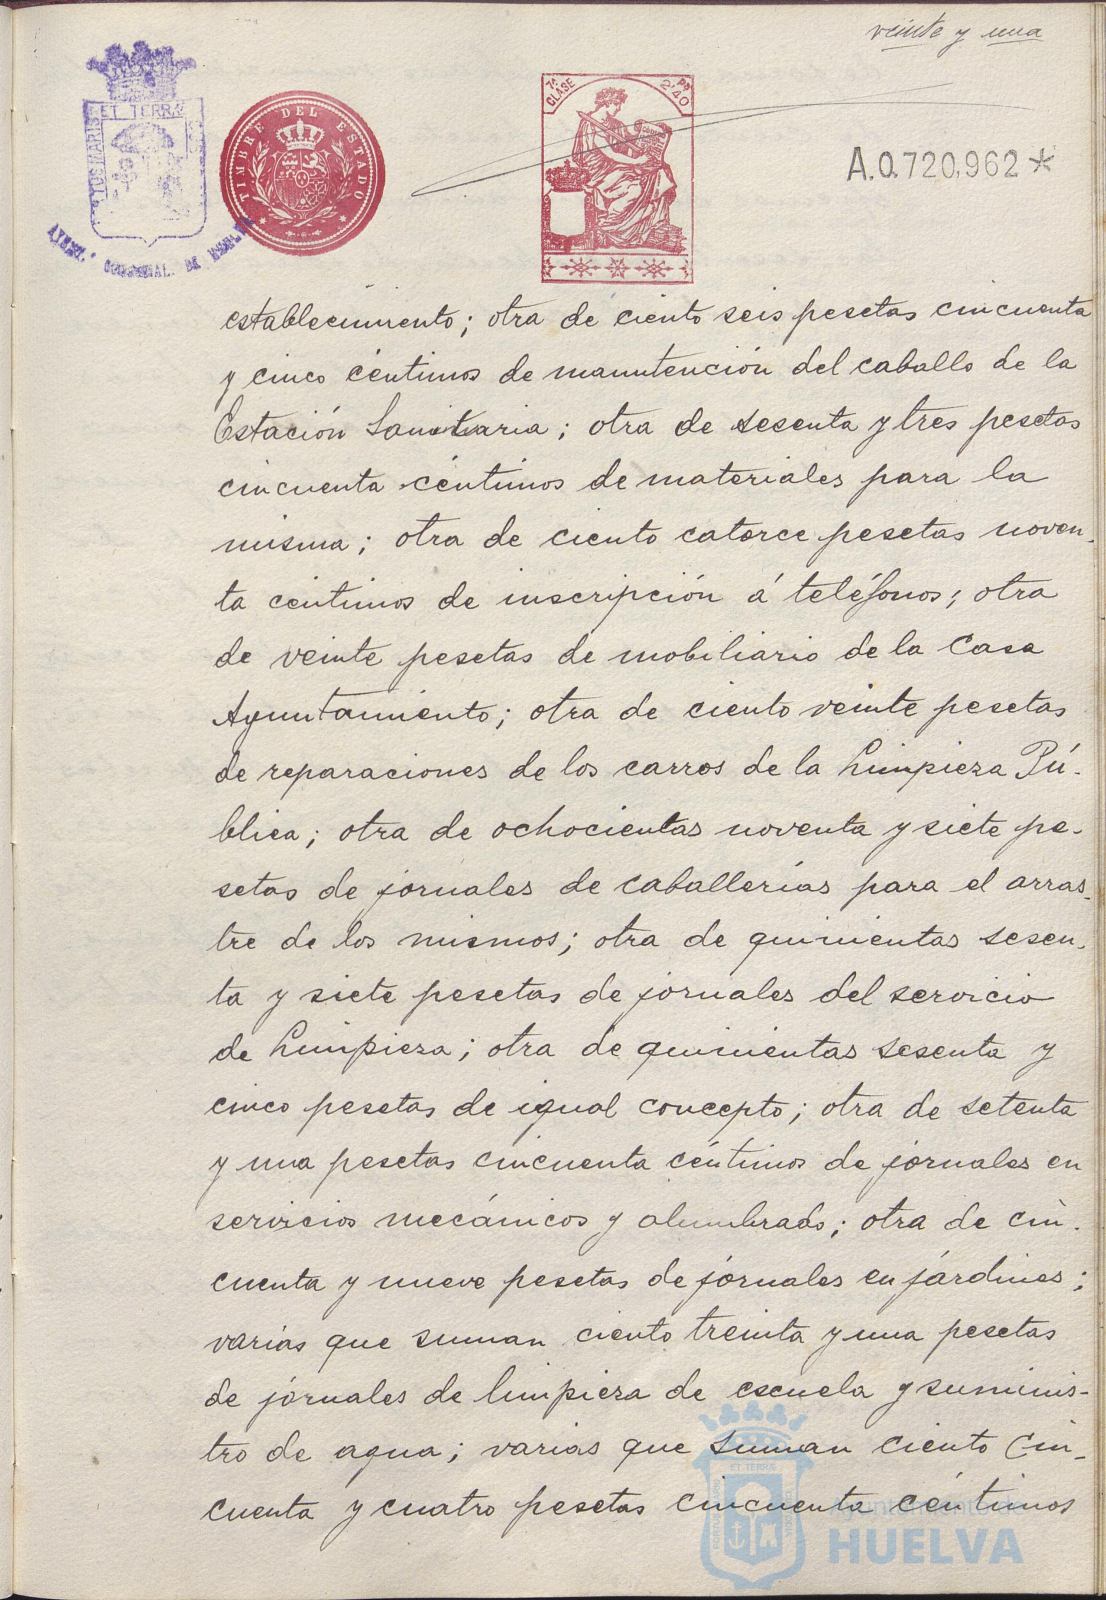 veinte y una
ET TERRÆ
TIMBRE DEL ESTADO
7ª CLASE
Pᵗˢ 2'40
A.0.720,962*
establecimiento; otra de ciento seis pesetas cincuenta
y cinco céntimos de manutención del caballo de la
Estación Sanitaria; otra de sesenta y tres pesetas
cincuenta céntimos de materiales para la
misma; otra de ciento catorce pesetas noven-
ta céntimos de inscripción á teléfonos; otra
de veinte pesetas de mobiliario de la Casa
Ayuntamiento; otra de ciento veinte pesetas
de reparaciones de los carros de la Limpieza Pú-
blica; otra de ochocientas noventa y siete pe-
setas de jornales de caballerías para el arras-
tre de los mismos; otra de quinientas sesen-
ta y siete pesetas de jornales del servicio
de Limpieza; otra de quinientas sesenta y
cinco pesetas de igual concepto; otra de setenta
y una pesetas cincuenta céntimos de jornales en
servicios mecánicos y alumbrado; otra de cin-
cuenta y nueve pesetas de jornales en jardines;
varias que suman ciento treinta y una pesetas
de jornales de limpieza de escuela y suminis-
tro de agua; varias que suman ciento cin-
cuenta y cuatro pesetas cincuenta céntimos
Ayuntamiento de
HUELVA